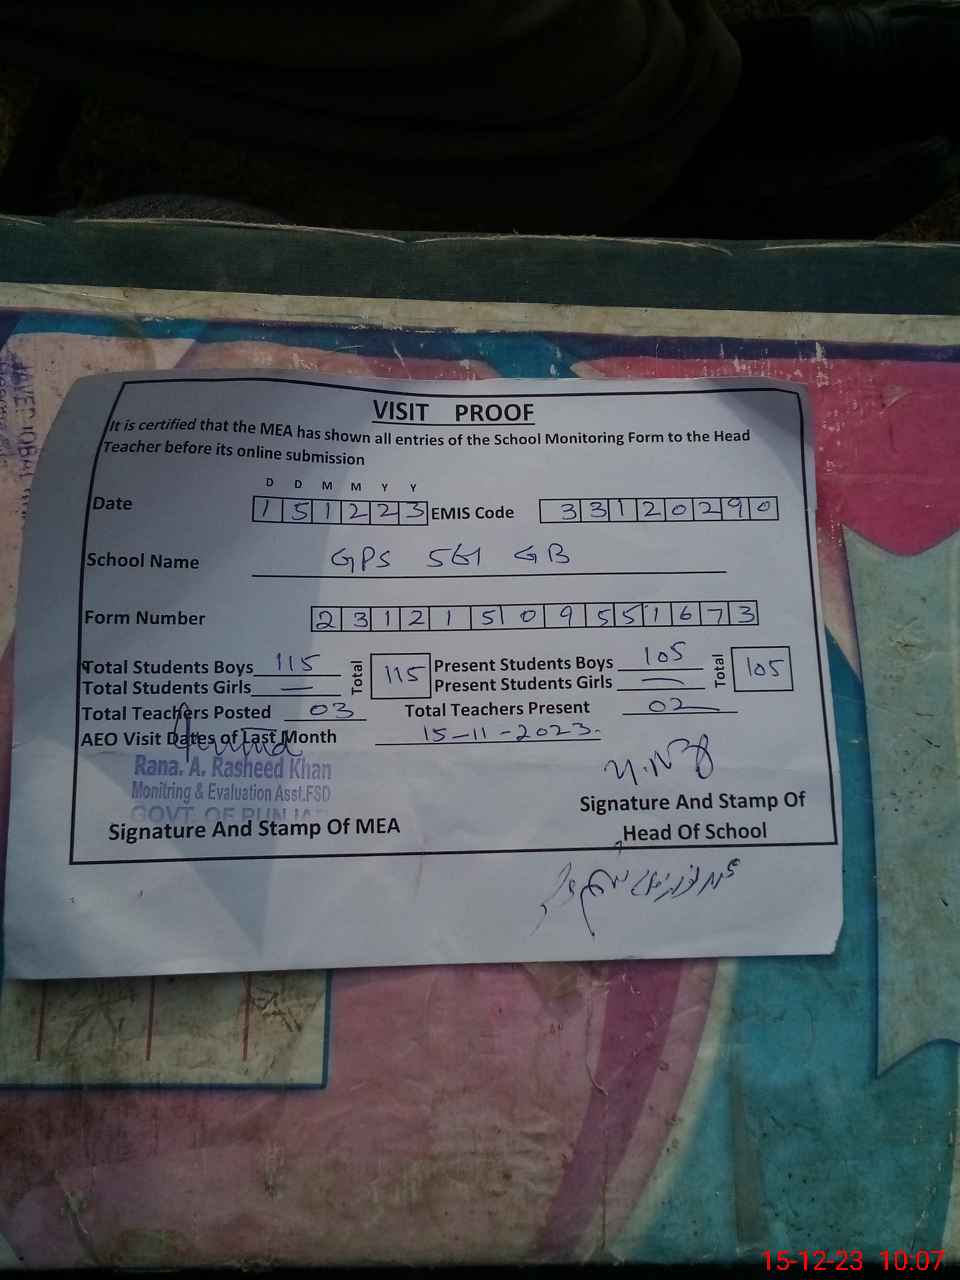 VISIT PROOF
It is certified that the MEA has shown all entries of the School Monitoring Form to the Head
Teacher before its online submission
D D M M Y Y
Date 151223 EMIS Code 33120290
School Name GPS 561 GB
Form Number 23121509551673
Total Students Boys 115 Total 115 Present Students Boys 105 Total 105
Total Students Girls — Present Students Girls —
Total Teachers Posted 03 Total Teachers Present 02
AEO Visit Dates of Last Month 15-11-2023.
Rana. A. Rasheed Khan
Monitring & Evaluation Asst.FSD
GOVT. OF PUNJAB
Signature And Stamp Of MEA
Signature And Stamp Of
Head Of School
15-12-23 10:07